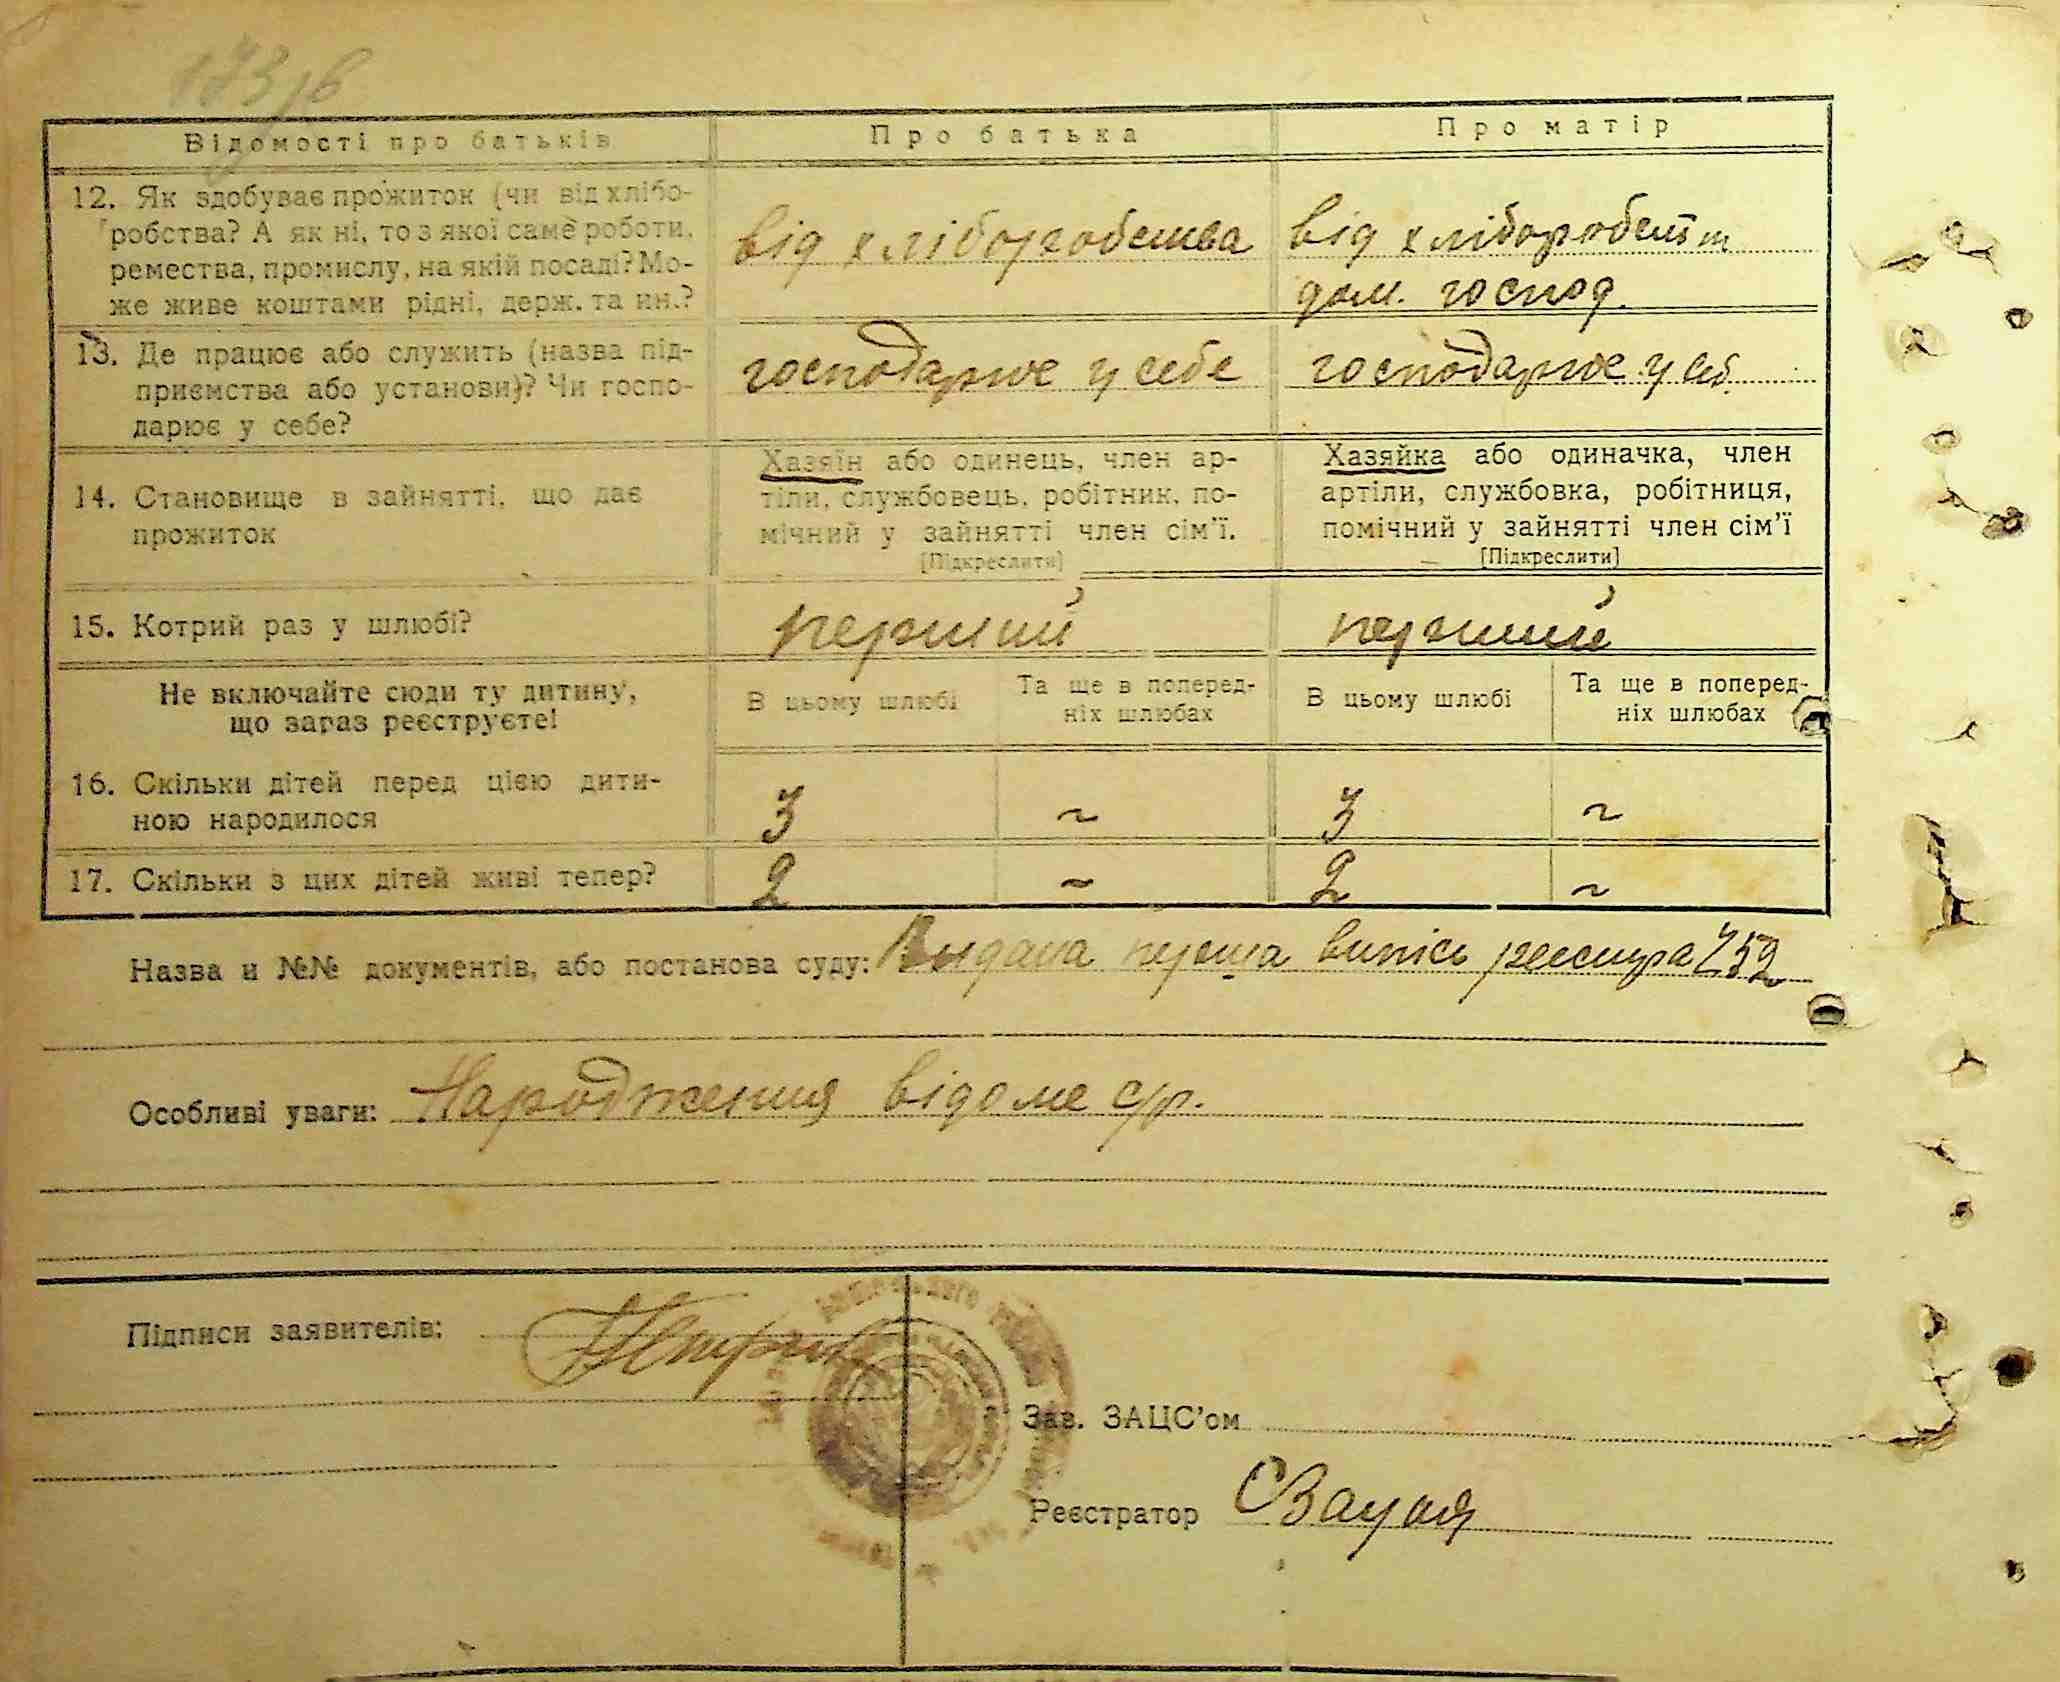 173 зв
Відомості про батьків
Про батька
Про матір
12. Як здобуває прожиток (чи від хлібо-
робства? А як ні, то з якої саме роботи,
ремества, промислу, на якій посаді? Мо-
же живе коштами рідні, держ. та ин.?
від хліборобства
від хліборобств
дом. господ.
13. Де працює або служить (назва під-
приємства або установи)? Чи госпо-
дарює у себе?
господарює у себе
господарює у себ.
14. Становище в зайнятті, що дає
прожиток
Хазяїн або одинець, член ар-
тіли, службовець, робітник, по-
мічний у зайнятті член сім'ї.
[Підкреслити]
Хазяйка або одиначка, член
артіли, службовка, робітниця,
помічний у зайнятті член сім'ї
[Підкреслити]
15. Котрий раз у шлюбі?
перший
перший
Не включайте сюди ту дитину,
що зараз реєструєте!
В цьому шлюбі
Та ще в поперед-
ніх шлюбах
В цьому шлюбі
Та ще в поперед-
ніх шлюбах
16. Скільки дітей перед цією дити-
ною народилося
3 ~ 3 ~
17. Скільки з цих дітей живі тепер?
2 ~ 2 ~
Назва и №№ документів, або постанова суду: Видана перша випісь реєстра 252
Особливі уваги: Народження відоме с/р.
Підписи заявителів:
Зав. ЗАЦС'ом
Реєстратор